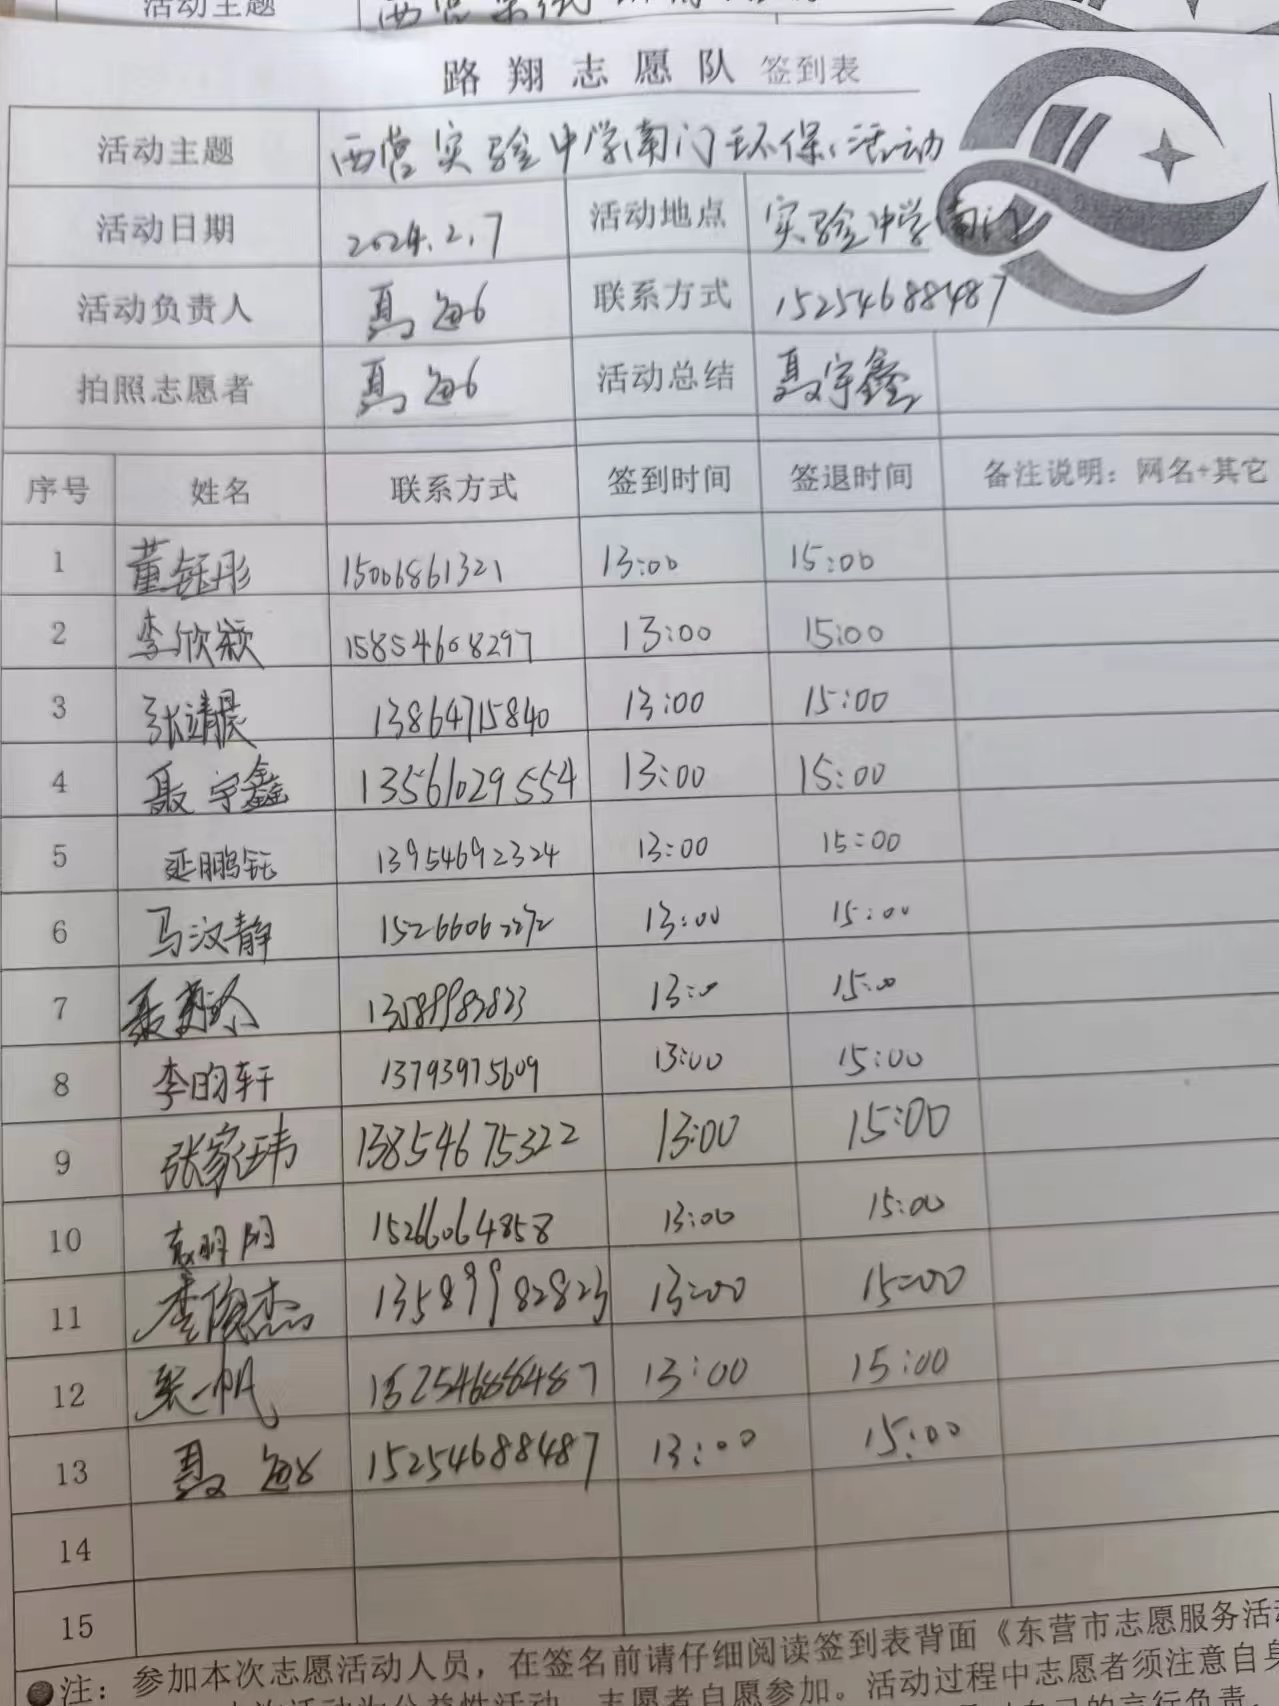 活动主题
路翔志愿队 签到表
活动主题 西营实验中学南门环保活动
活动日期 2024.2.7 活动地点 实验中学南门
活动负责人 联系方式 15254688487
拍照志愿者 活动总结 聂宇鑫
序号 姓名 联系方式 签到时间 签退时间 备注说明：网名+其它
1 董钰彤 15006861321 13:00 15:00
2 李欣颖 15854608297 13:00 15:00
3 张靖晨 13864715840 13:00 15:00
4 聂宇鑫 13561029554 13:00 15:00
5 延鹏钰 13954692324 13:00 15:00
6 马汶静 15266062272 13:00 15:00
7 13589982823 13:00 15:00
8 李昀轩 13793975609 13:00 15:00
9 张家玮 13854675322 13:00 15:00
10 袁明阳 15266064858 13:00 15:00
11 李俊杰 13589982823 13:00 15:00
12 张一帆 15254688487 13:00 15:00
13 15254688487 13:00 15:00
14
15
注：参加本次志愿活动人员，在签名前请仔细阅读签到表背面《东营市志愿服务活
志愿者自愿参加。活动过程中志愿者须注意自身
言行负责。